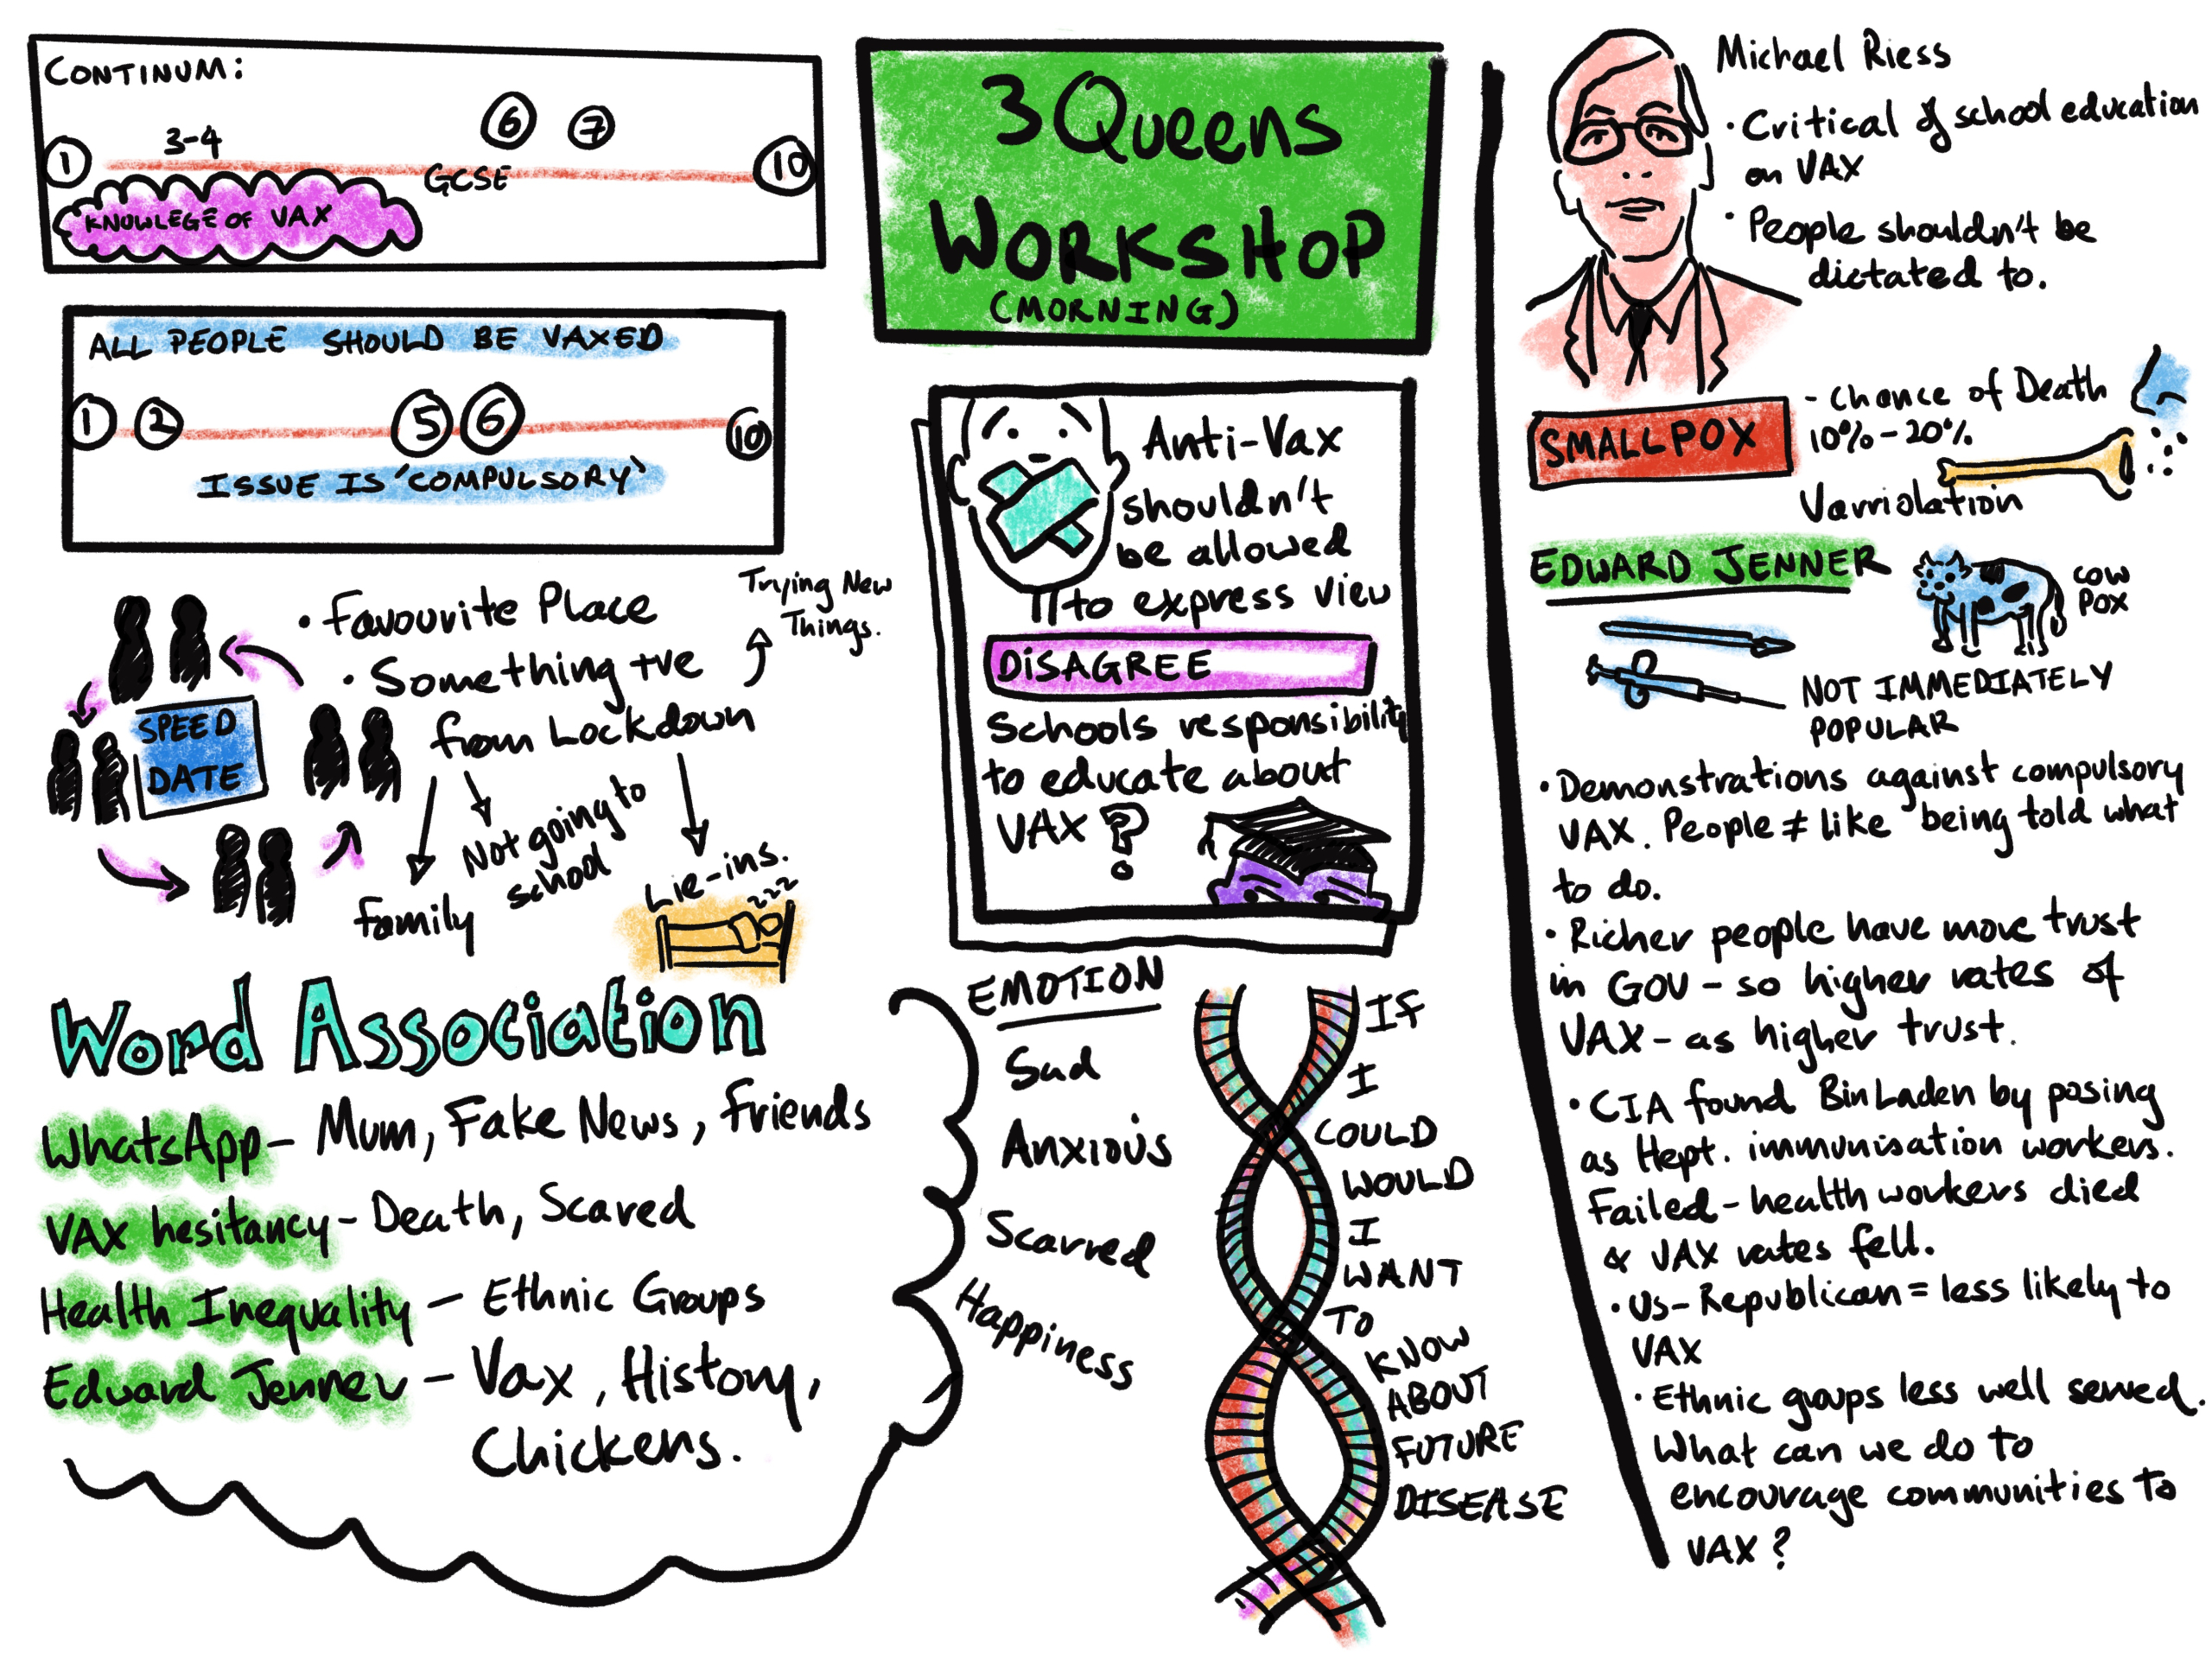 CONTINUM:
1
3-4
6
7
10
GCSE
KNOWLEGE OF VAX
ALL PEOPLE SHOULD BE VAXED
1
2
5
6
10
ISSUE IS 'COMPULSORY'
• Favourite Place
• Something +ve
from Lockdown
Trying New
Things.
SPEED
DATE
family
Not going to
school
Lie-ins.
zzz
Word Association
WhatsApp - Mum, Fake News, friends
VAX hesitancy - Death, Scared
Health Inequality - Ethnic Groups
Edward Jenner - Vax, History,
Chickens.
3 Queens
WORKSHOP
(MORNING)
Anti-Vax
shouldn't
be allowed
to express view
DISAGREE
Schools responsibility
to educate about
VAX?
EMOTION
Sad
Anxious
Scarred
Happiness
IF
I
COULD
WOULD
I
WANT
TO
KNOW
ABOUT
FUTURE
DISEASE
Michael Riess
• Critical of school education
on VAX
• People shouldn't be
dictated to.
SMALLPOX
- Chance of Death
10% - 20%
Varriolation
EDWARD JENNER
COW
POX
NOT IMMEDIATELY
POPULAR
• Demonstrations against compulsory
VAX. People ≠ like being told what
to do.
• Richer people have more trust
in GOV - so higher rates of
VAX - as higher trust.
• CIA found BinLaden by posing
as Hept. immunisation workers.
Failed - health workers died
& VAX rates fell.
• US - Republican = less likely to
VAX
• Ethnic groups less well served.
What can we do to
encourage communities to
VAX?